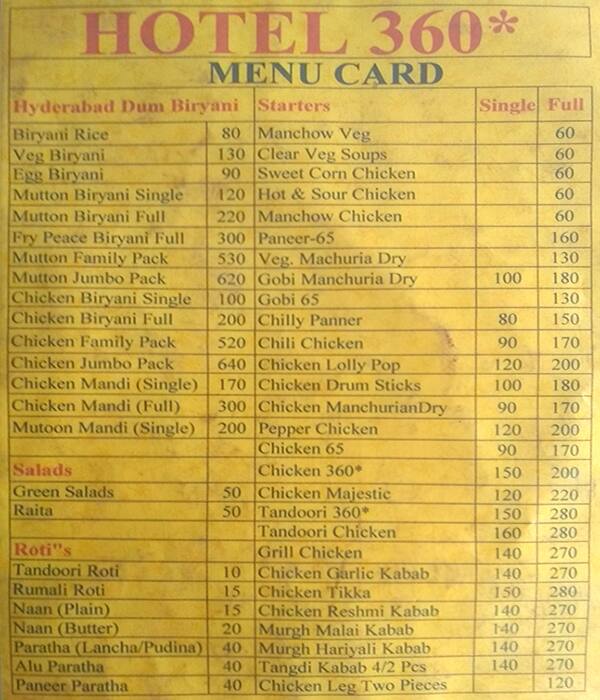 HOTEL 360*
MENU CARD
Hyderabad Dum Biryani Starters Single Full
Biryani Rice 80 Manchow Veg 60
Veg Biryani 130 Clear Veg Soups 60
Egg Biryani 90 Sweet Corn Chicken 60
Mutton Biryani Single 120 Hot & Sour Chicken 60
Mutton Biryani Full 220 Manchow Chicken 60
Fry Peace Biryani Full 300 Paneer-65 160
Mutton Family Pack 530 Veg. Machuria Dry 130
Mutton Jumbo Pack 620 Gobi Manchuria Dry 100 180
Chicken Biryani Single 100 Gobi 65 130
Chicken Biryani Full 200 Chilly Panner 80 150
Chicken Family Pack 520 Chili Chicken 90 170
Chicken Jumbo Pack 640 Chicken Lolly Pop 120 200
Chicken Mandi (Single) 170 Chicken Drum Sticks 100 180
Chicken Mandi (Full) 300 Chicken ManchurianDry 90 170
Mutoon Mandi (Single) 200 Pepper Chicken 120 200
Chicken 65 90 170
Salads Chicken 360* 150 200
Green Salads 50 Chicken Majestic 120 220
Raita 50 Tandoori 360* 150 280
Tandoori Chicken 160 280
Roti"s Grill Chicken 140 270
Tandoori Roti 10 Chicken Garlic Kabab 140 270
Rumali Roti 15 Chicken Tikka 150 280
Naan (Plain) 15 Chicken Reshmi Kabab 140 270
Naan (Butter) 20 Murgh Malai Kabab 140 270
Paratha (Lancha/Pudina) 40 Murgh Hariyali Kabab 140 270
Alu Paratha 40 Tangdi Kabab 4/2 Pcs 140 270
Paneer Paratha 40 Chicken Leg Two Pieces 120